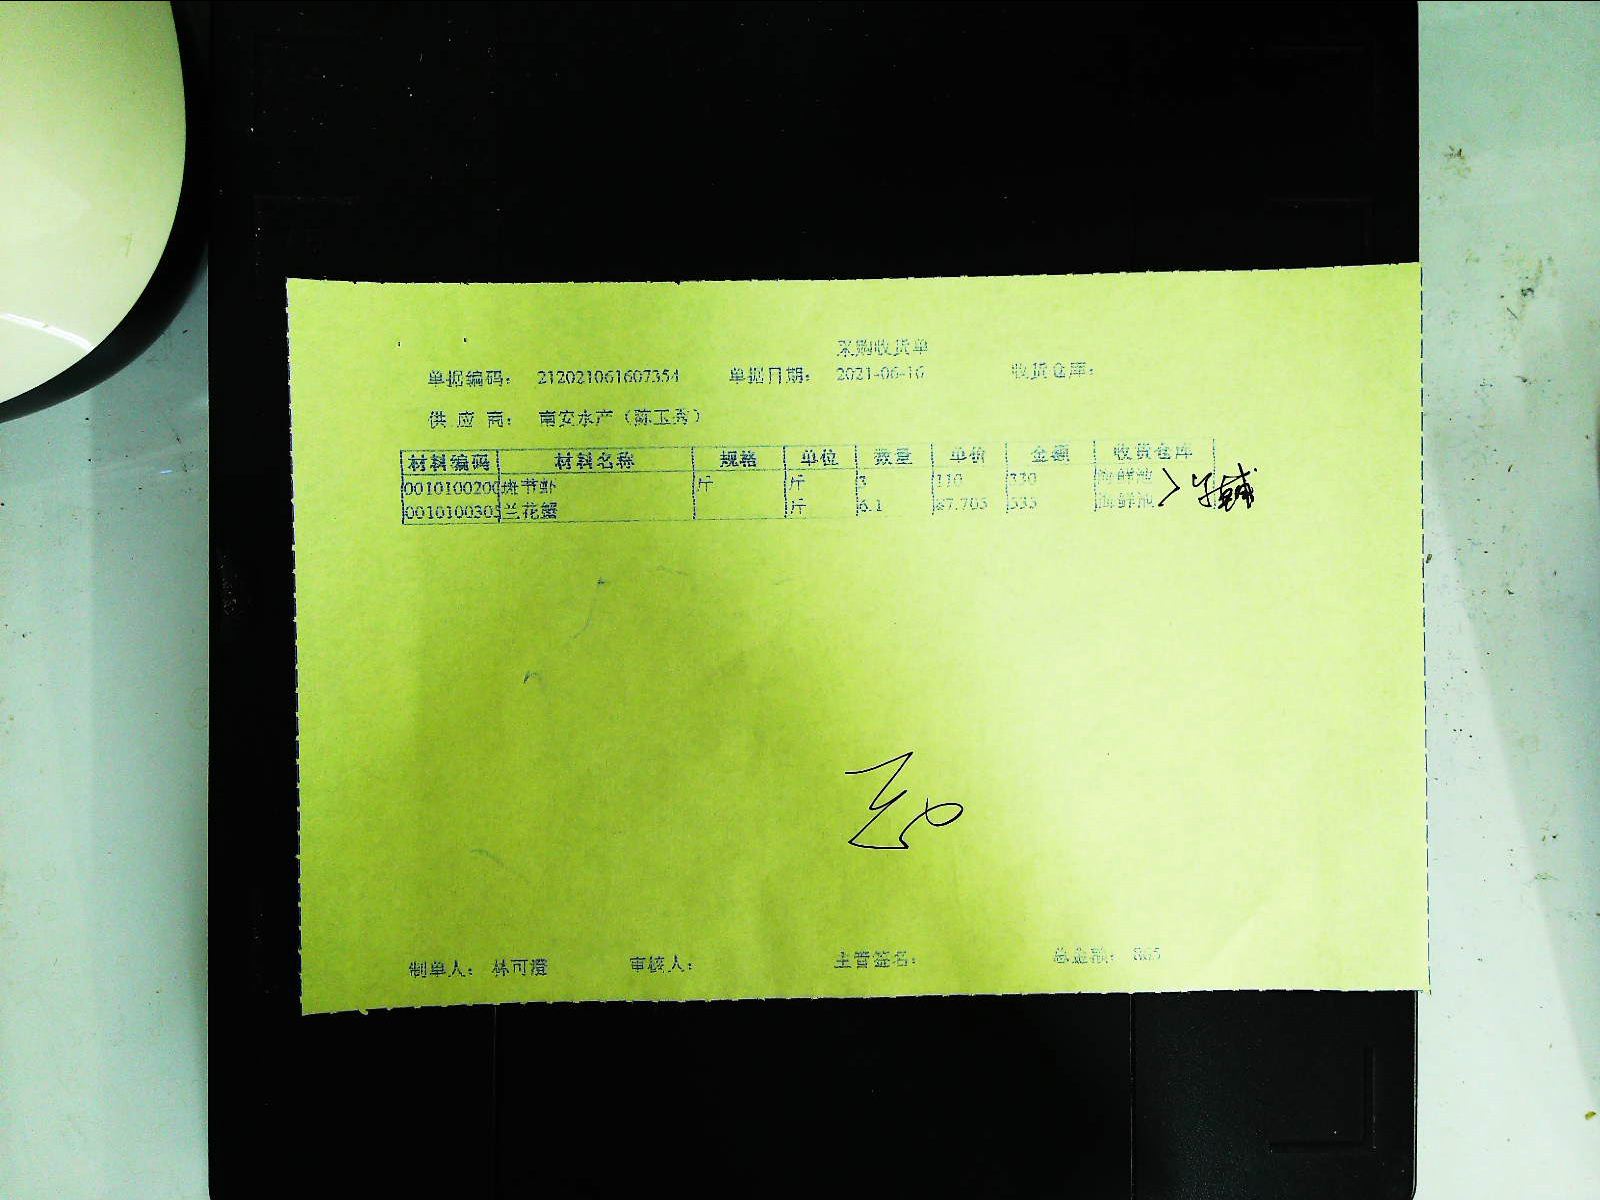 采购收货单
单据编码： 212021061607354 单据日期： 2021-06-16 收货仓库：
供 应 商： 南安水产（陈玉秀）
材料编码 材料名称 规格 单位 数量 单价 金额 收货仓库
0010100200 斑节虾 斤 斤 3 110 330 海鲜池
0010100303 兰花蟹 斤 6.1 87.705 535 海鲜池
制单人： 林可澄 审核人： 主管签名： 总金额： 865